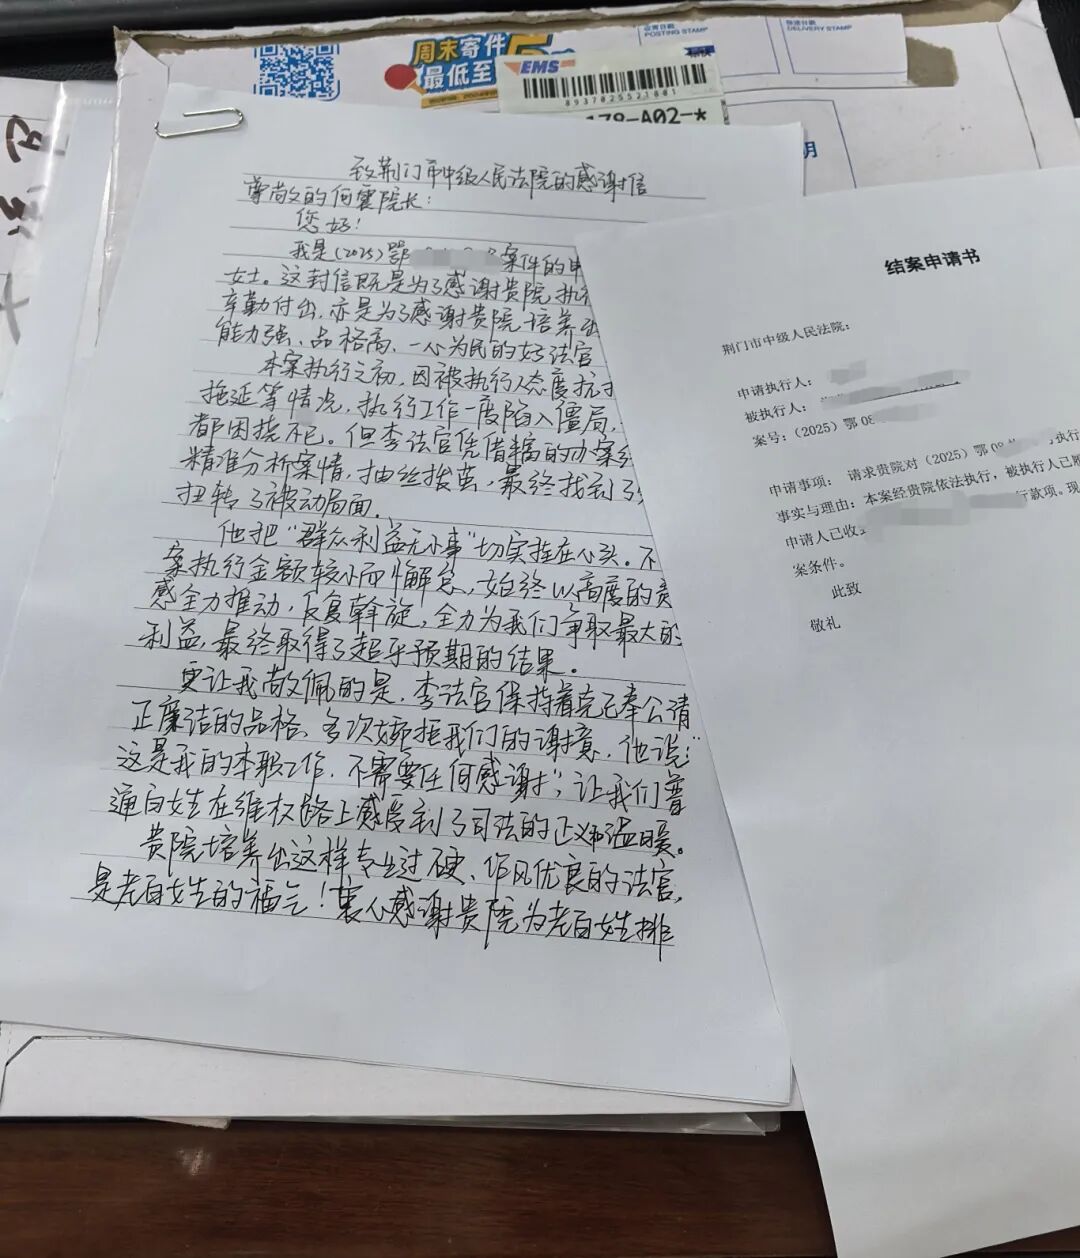 周末寄件
最低至5
EMS
8937025521801
178-A02-*
POSTING STAMP
DELIVERY STAMP
致荆门市中级人民法院的感谢信
尊敬的何震院长:
您好!
我是(2025)鄂 案件的申
女士。这封信既是为了感谢贵院执行
辛勤付出,亦是为了感谢贵院培养出
能力强、品格高、一心为民的好法官
本案执行之初,因被执行人态度抗拒
拖延等情况,执行工作一度陷入僵局,
都困挠不已。但李法官凭借丰富的办案经
精准分析案情,抽丝拨茧,最终找到了突
扭转了被动局面。
他把“群众利益无小事”切实挂在心头。不
案执行金额较小而懈怠,始终以高度的责
感全力推动,反复斡旋,全力为我们争取最大的
利益,最终取得了超乎预期的结果。
更让我敬佩的是,李法官保持着克己奉公清
正廉洁的品格、多次婉拒我们的谢意,他说:“
这是我的本职工作,不需要任何感谢”,让我们普
通百姓在维权路上感受到了司法的正义和温暖。
贵院培养出这样专业过硬、作风优良的法官,
是老百姓的福气!衷心感谢贵院为老百姓排
结案申请书
荆门市中级人民法院:
申请执行人:
被执行人:
案号:(2025)鄂 08
申请事项:请求贵院对(2025)鄂 08 执行
事实与理由:本案经贵院依法执行,被执行人已履
申请人已收 行款项。现
案条件。
此致
敬礼